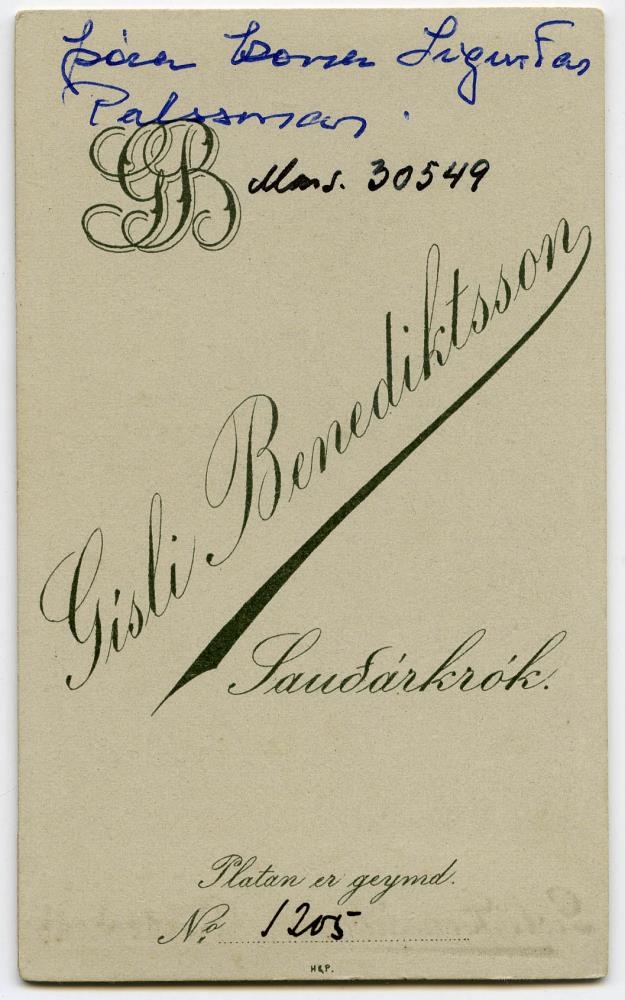 Þóra kona Sigurðar
Pálssonar.
GB
Mms. 30549
Gísli Benediktsson
Sauðárkrók.
Platan er geymd.
No 1205
H&P.